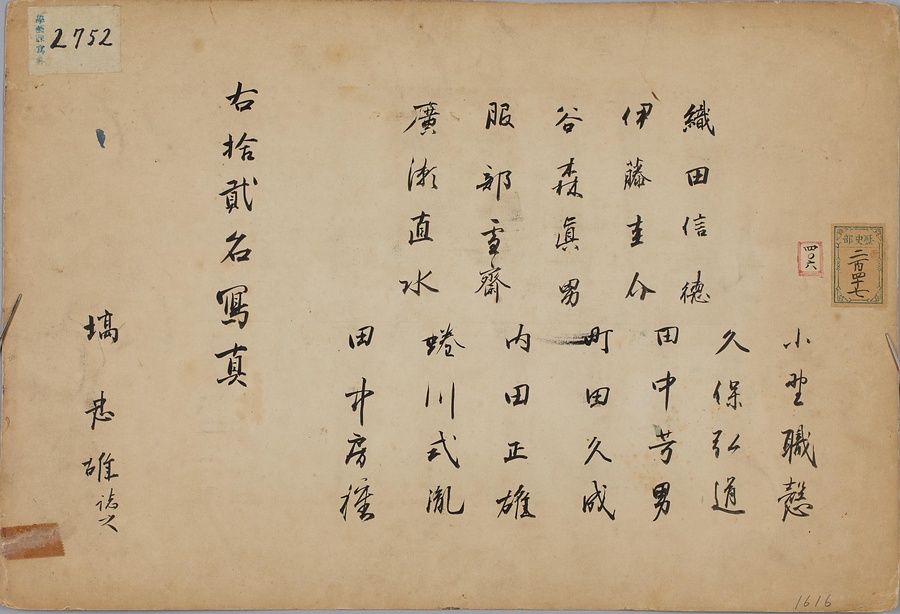 小野職愨
織田信徳
久保弘道
伊藤圭介
田中芳男
谷森真男
町田久成
服部雪齋
内田正雄
廣瀬直水
蜷川式胤
田中房種
右拾貳名寫真
塙忠雄誌之
2752
歴史部
二百四十七
四〇六
1616